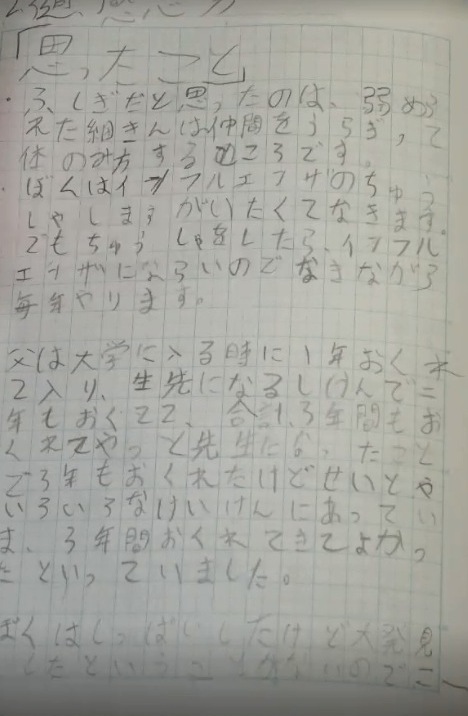 「思ったこと」
・ふしぎだと思ったのは、弱められ
れた細きんは仲間をうらぎって
体のみ方するところです。
・ぼくはインフルエンザのちゅう
しゃします がいたくてなきます。
でもちゅうしゃをしたら、インフル
エンザにならいのでなきながら
毎年やります。
父は大学に入る時に1年おくれ
て入り、生先になるしけんで二
年もおくてて、合計、3年間もお
くれてやっと先生になったこと
で3年もおくれたけどせいとや
いろいろなけいけんにあってい
ま、3年間おくれてきてよかっ
たといっていました。
ぼくはしっぱいしたけど大発見
したということがないのでこ